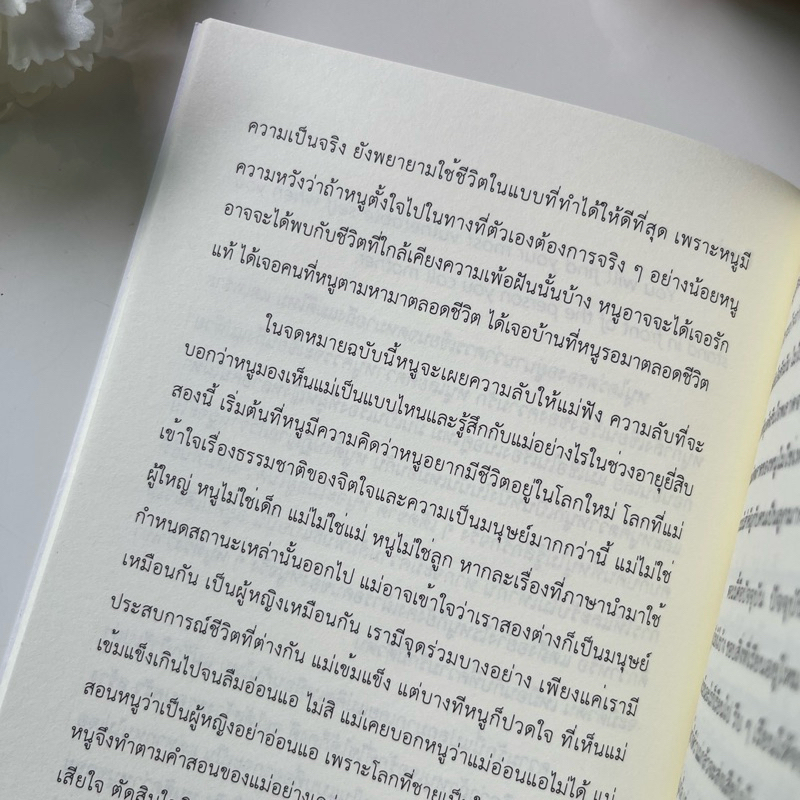 ความเป็นจริง ยังพยายามใช้ชีวิตในแบบที่ทำได้ให้ดีที่สุด เพราะหนูมี
ความหวังว่าถ้าหนูตั้งใจไปในทางที่ตัวเองต้องการจริง ๆ อย่างน้อยหนู
อาจจะได้พบกับชีวิตที่ใกล้เคียงความเพ้อฝันนั้นบ้าง หนูอาจจะได้เจอรัก
แท้ ได้เจอคนที่หนูตามหามาตลอดชีวิต ได้เจอบ้านที่หนูรอมาตลอดชีวิต
ในจดหมายฉบับนี้หนูจะเผยความลับให้แม่ฟัง ความลับที่จะ
บอกว่าหนูมองเห็นแม่เป็นแบบไหนและรู้สึกกับแม่อย่างไรในช่วงอายุยี่สิบ
สองนี้ เริ่มต้นที่หนูมีความคิดว่าหนูอยากมีชีวิตอยู่ในโลกใหม่ โลกที่แม่
เข้าใจเรื่องธรรมชาติของจิตใจและความเป็นมนุษย์มากกว่านี้ แม่ไม่ใช่
ผู้ใหญ่ หนูไม่ใช่เด็ก แม่ไม่ใช่แม่ หนูไม่ใช่ลูก หากละเรื่องที่ภาษานำมาใช้
กำหนดสถานะเหล่านั้นออกไป แม่อาจเข้าใจว่าเราสองต่างก็เป็นมนุษย์
เหมือนกัน เป็นผู้หญิงเหมือนกัน เรามีจุดร่วมบางอย่าง เพียงแค่เรามี
ประสบการณ์ชีวิตที่ต่างกัน แม่เข้มแข็ง แต่บางทีหนูก็ปวดใจ ที่เห็นแม่
เข้มแข็งเกินไปจนลืมอ่อนแอ ไม่สิ แม่เคยบอกหนูว่าแม่อ่อนแอไม่ได้ แม่
สอนหนูว่าเป็นผู้หญิงอย่าอ่อนแอ เพราะโลกที่ชายเป็น
หนูจึงทำตามคำสอนของแม่อย่าง
เสียใจ ตัดสินใจ